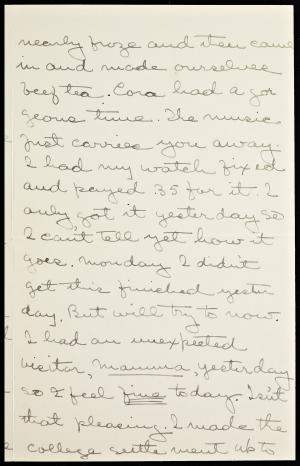 nearly froze and then came
in and made ourselves
beef tea. Cora had a gor
geous time. The music
just carries you away.
I had my watch fixed
and payed 35 for it I
only got it yesterday so
I can't tell yet how it
goes. Monday I didn't
get this finished yester
day. But will try to now.
I had an unexpected
visitor, mamma, yesterday
so I feel fine today. Isn't
that pleasing. I made the
college settle ment up to